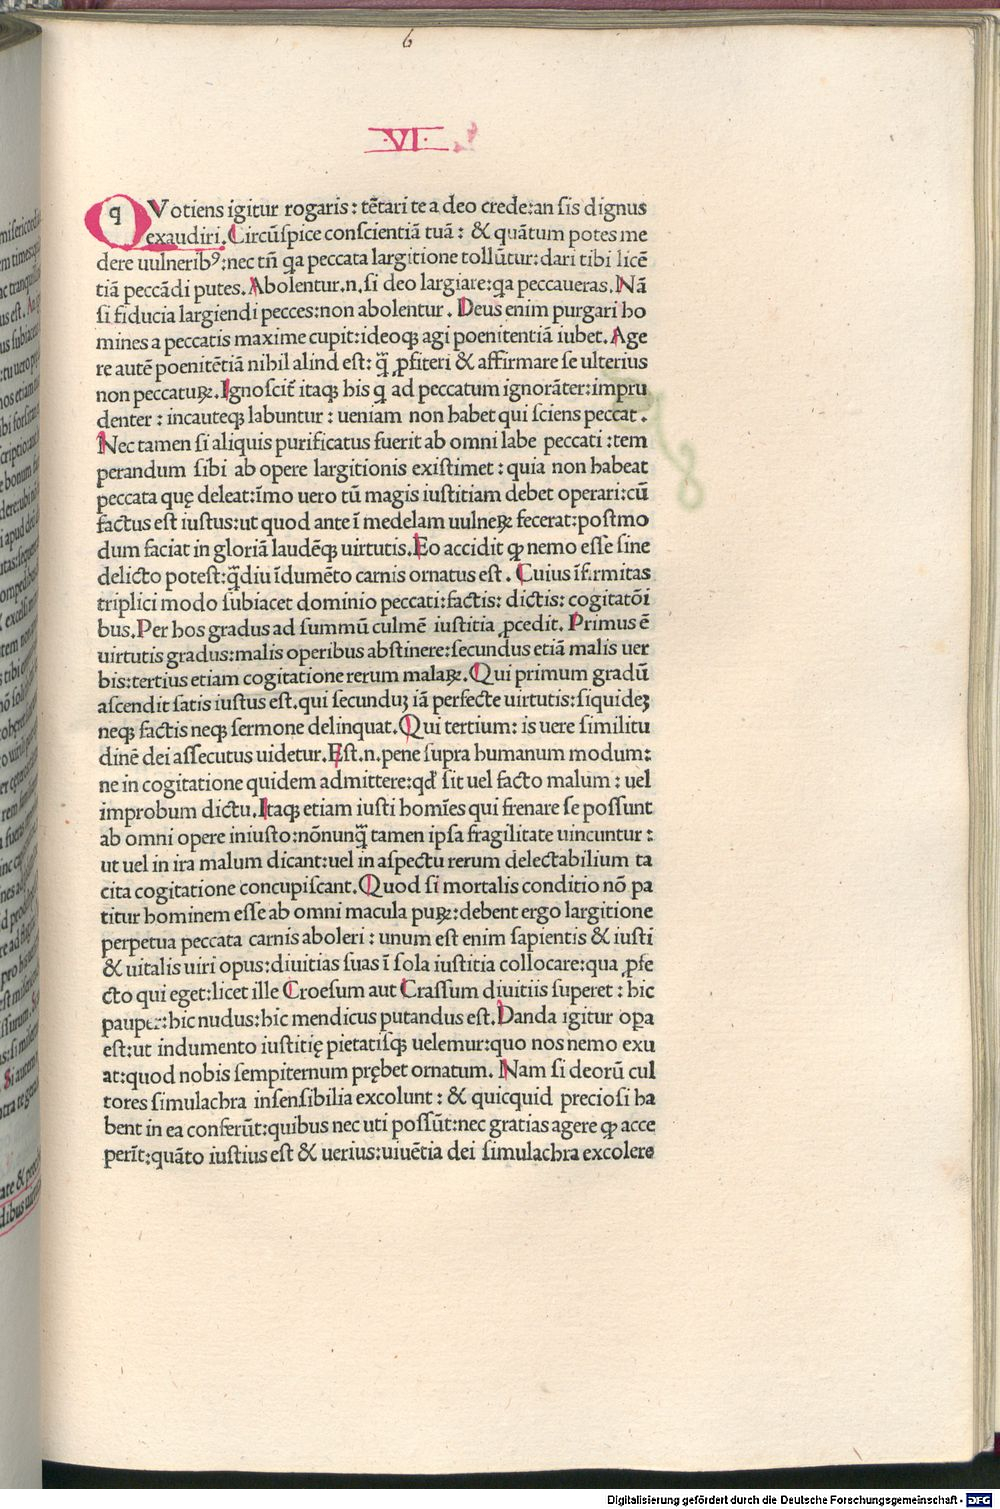 6
·VI·
QVotiens igitur rogaris: tētari te a deo crede:an ſis dignus
exaudiri.Circūſpice conſcientiā tuā: & quātum potes me
dere uulneribꝰ:nec tn̄ qa peccata largitione tollūtur:dari tibi licē
tiā peccādi putes.Abolentur.n.ſi deo largiare:qa peccaueras.Nā
ſi fiducia largiendi pecces:non abolentur. Deus enim purgari ho
mines a peccatis maxime cupit:ideoqꝫ agi poenitentiā iubet.Age
re autē poenitētiā nihil alind est: q̄ ꝓfiteri & affirmare ſe ulterius
non peccatuꝝ.Ignoſcit̄ itaqꝫ his q ad peccatum ignorāter:impru
denter: incauteqꝫ labuntur: ueniam non habet qui ſciens peccat.
Nec tamen ſi aliquis purificatus fuerit ab omni labe peccati:tem
perandum ſibi ab opere largitionis existimet: quia non habeat
peccata quę deleat:īmo uero tū magis iustitiam debet operari:cū
factus est iustus:ut quod ante ī medelam uulneꝝ fecerat:postmo
dum faciat in gloriā laudēqꝫ uirtutis.Eo accidit qꝫ nemo eſſe ſine
delicto potest:q̄diu īdumēto carnis ornatus est. Cuius īfirmitas
triplici modo ſubiacet dominio peccati:factis: dictis: cogitatōi
bus.Per hos gradus ad ſummū culmē iustitia ꝓcedit. Primus ē
uirtutis gradus:malis operibus abstinere:ſecundus etiā malis uer
bis:tertius etiam cogitatione rerum malaꝝ.Qui primum gradū
aſcendit ſatis iustus est.qui ſecunduꝫ iā perfecte uirtutis:ſiquideꝫ
neqꝫ factis neqꝫ ſermone delinquat.Qui tertium: is uere ſimilitu
dinē dei aſſecutus uidetur.Est.n.pene ſupra humanum modum:
ne in cogitatione quidem admittere:qd̓ ſit uel facto malum: uel
improbum dictu.Itaqꝫ etiam iusti homīes qui frenare ſe poſſunt
ab omni opere iniusto:nōnunq̄ tamen ipſa fragilitate uincuntur:
ut uel in ira malum dicant:uel in aſpectu rerum delectabilium ta
cita cogitatione concupiſcant.Quod ſi mortalis conditio nō pa
titur hominem eſſe ab omni macula puꝝ:debent ergo largitione
perpetua peccata carnis aboleri: unum est enim ſapientis & iusti
& uitalis uiri opus:diuitias ſuas ī ſola iustitia collocare:qua ꝓfe
cto qui eget:licet ille Croeſum aut Craſſum diuitiis ſuperet: hic
pauper:hic nudus:hic mendicus putandus est.Danda igitur oꝑa
est:ut indumento iustitię pietatiſqꝫ uelemur:quo nos nemo exu
at:quod nobis ſempiternum prębet ornatum. Nam ſi deorū cul
tores ſimulachra inſenſibilia excolunt: & quicquid precioſi ha
bent in ea conferūt:quibus nec uti poſſūt:nec gratias agere qꝫ acce
perīt:quāto iustius est & uerius:uiuētia dei ſimulachra excolere
Digitalisierung gefördert durch die Deutsche Forschungsgemeinschaft - DFG